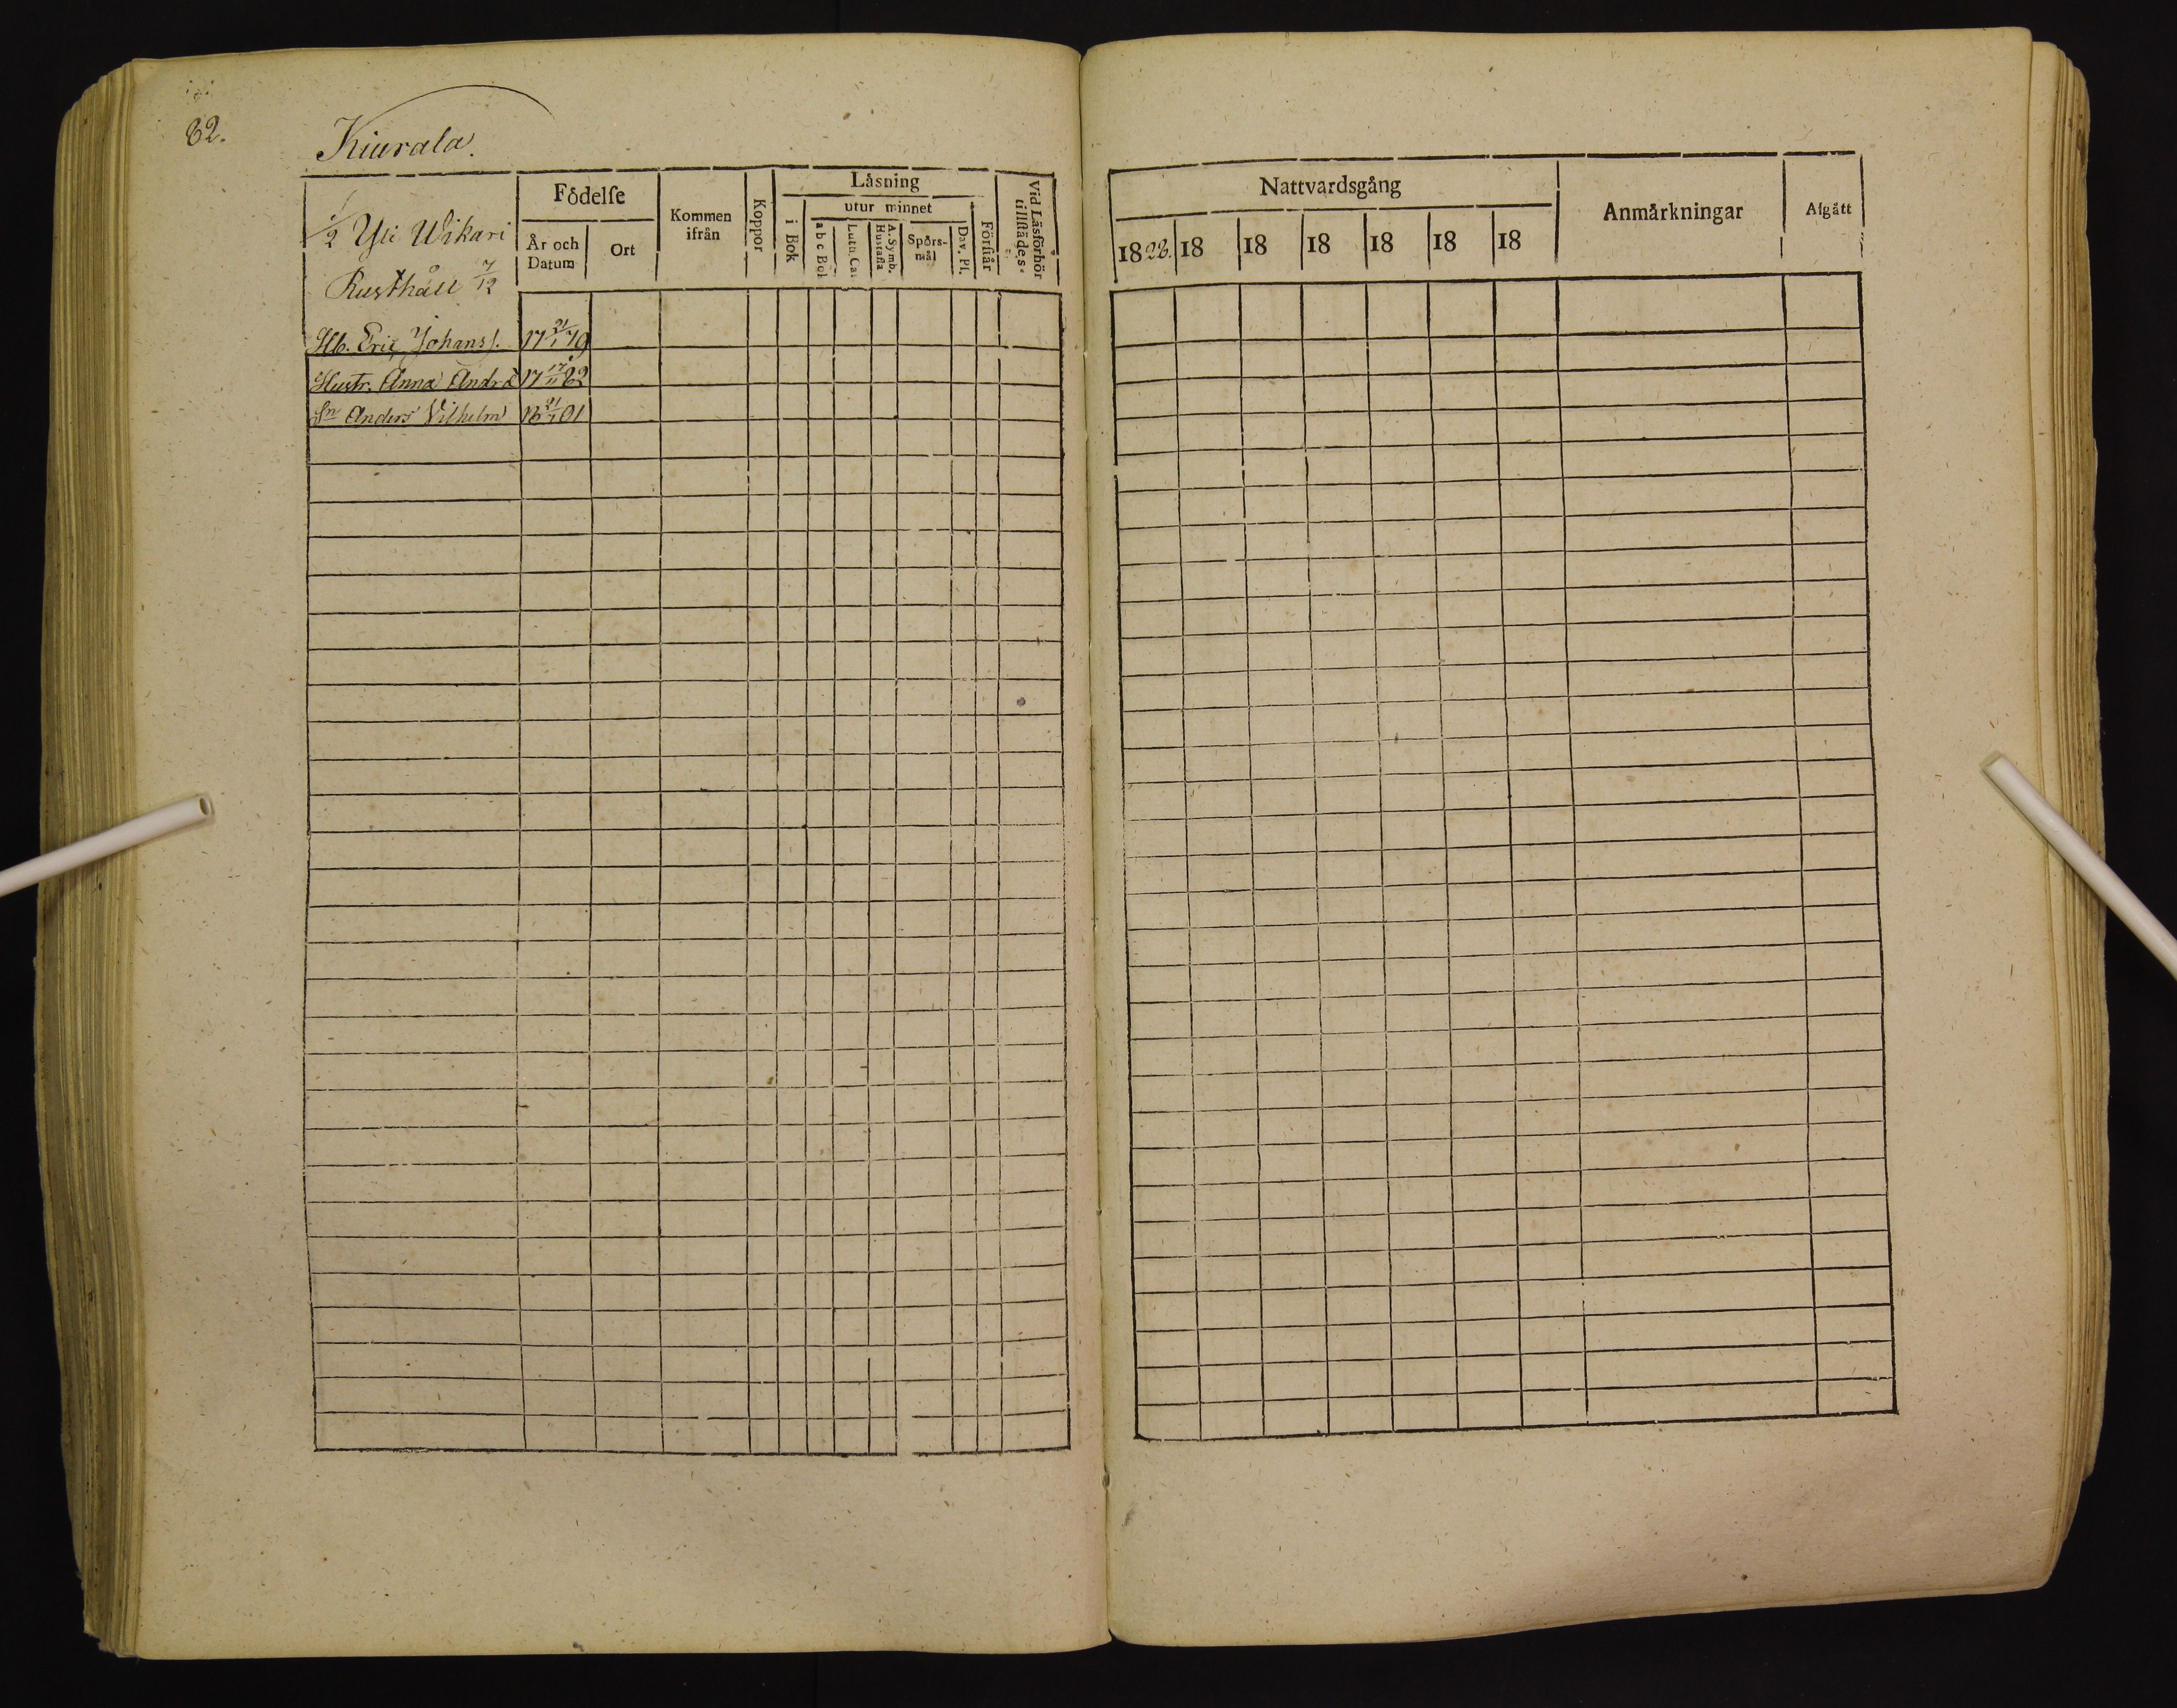 62.
Kiurala.
1/2 Yli Wikari
Rusthåll 7/12
Födelse
År och Datum
Ort
Kommen ifrån
Koppor
Läsning
i Bok
utur minnet
a b c Bok
Luth. Cat.
A. Symb. Hustafla
Spörs-mål
Dav. Ps.
Förstår
Vid Läsförhör tillstädes
Hb. Eric Johanss. 17 21/1 79
Hustr. Anna Andrd 17 17/11 82
Sn Anders Vilhelm 18 21/1 01
Nattvardsgång
1823. 18 18 18 18 18 18
Anmärkningar
Afgått